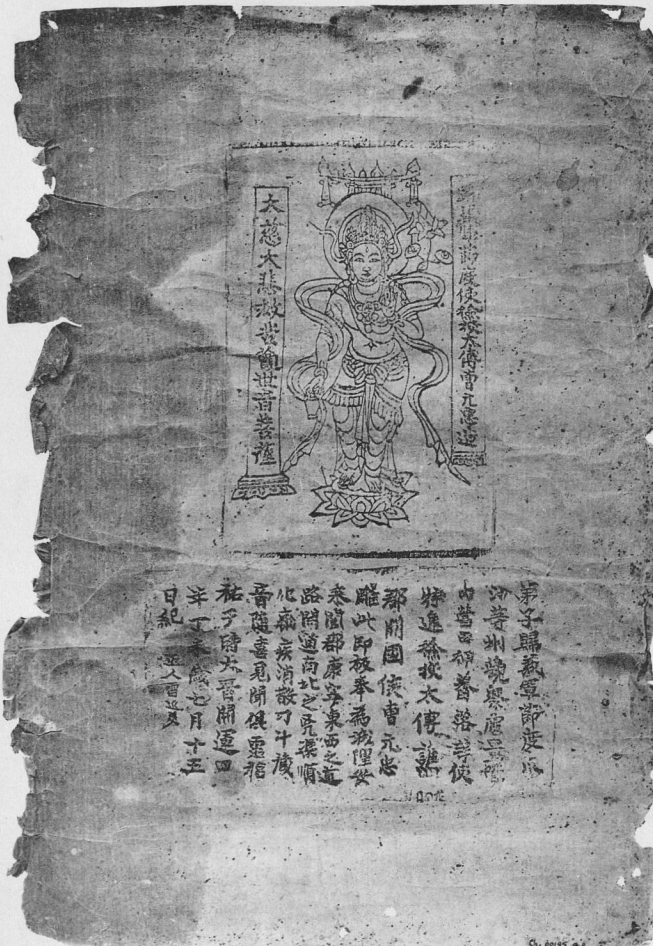 歸義軍節度使檢校太傅曹元忠造
大慈大悲救苦觀世音菩薩
弟子歸義軍節度瓜
沙等州觀察處置管
內營田押蕃落等使
特進檢校太傅譙
郡開國侯曹元忠
雕此印板奉為城隍安
泰闔郡康寧東西之道
路開通南北之兇渠順
化癘疾消散刁斗藏
音隨喜見聞俱霑福
祐于時大晉開運四
年丁未歲七月十五
日紀 匠人雷延美
Ch. 00185